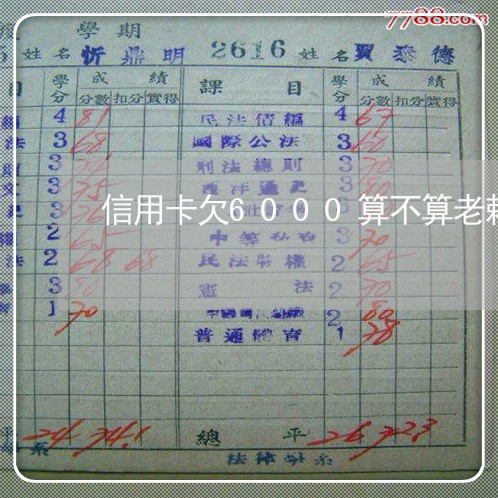 7788.com
學期
姓名 忻鼎明 2616 姓名 賈泰德
目 學分 成績 課目 學分 成績
分數 扣分 實得 分數 扣分 實得
4 81 民法債編 4 67
法 3 68 國際公法 3 60
則 3 刑法總則 3 70
3 75 西洋通史
信用卡欠6000算不算老賴
2 65 3 70
法 2 68 68 民法物權 2 65
3 80 憲法 2 70
1 70 2 80
普通體育 1 78
平 24 74.1 總平 26 72.3
系 法律學系